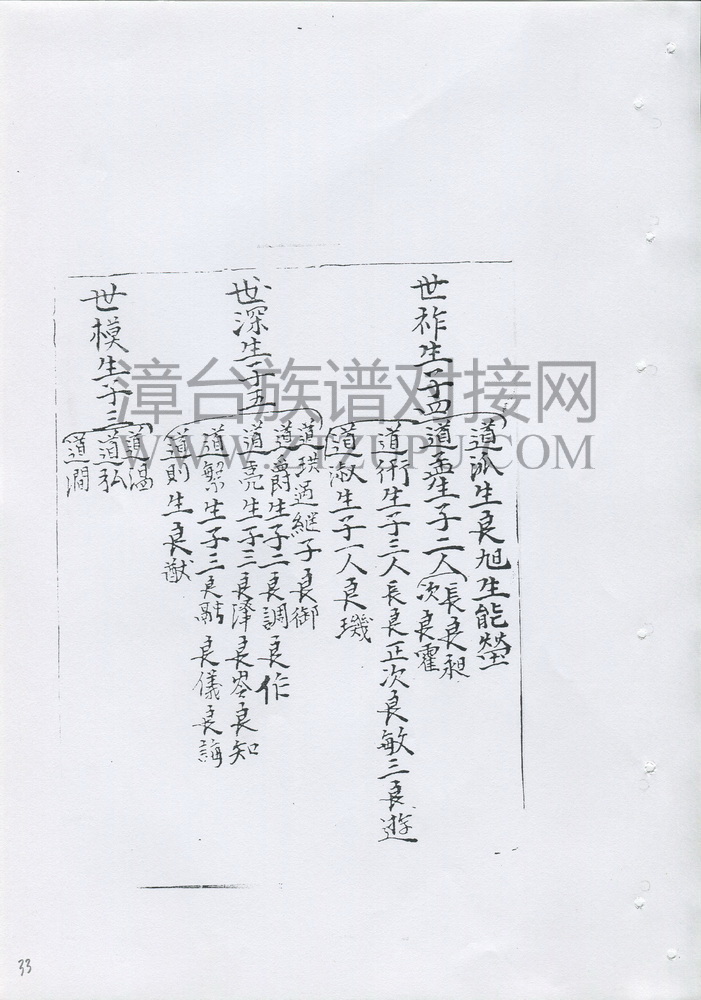 世祚生子四
道派生良旭生能瑩
道孟生子二人長良昶
次良霍
道術生子三人長良正次良敏三良遊
道淑生子一人良璣
世深生子五
道珙過繼子良御
道爵生子二良調良作
道亮生子三良澤良岺良知
道繁生子三良融良儀良誨
道則生良猷
世模生子三
道温
道弘
道澗
漳台族谱对接网
WWW.ZTZUPU.COM
33